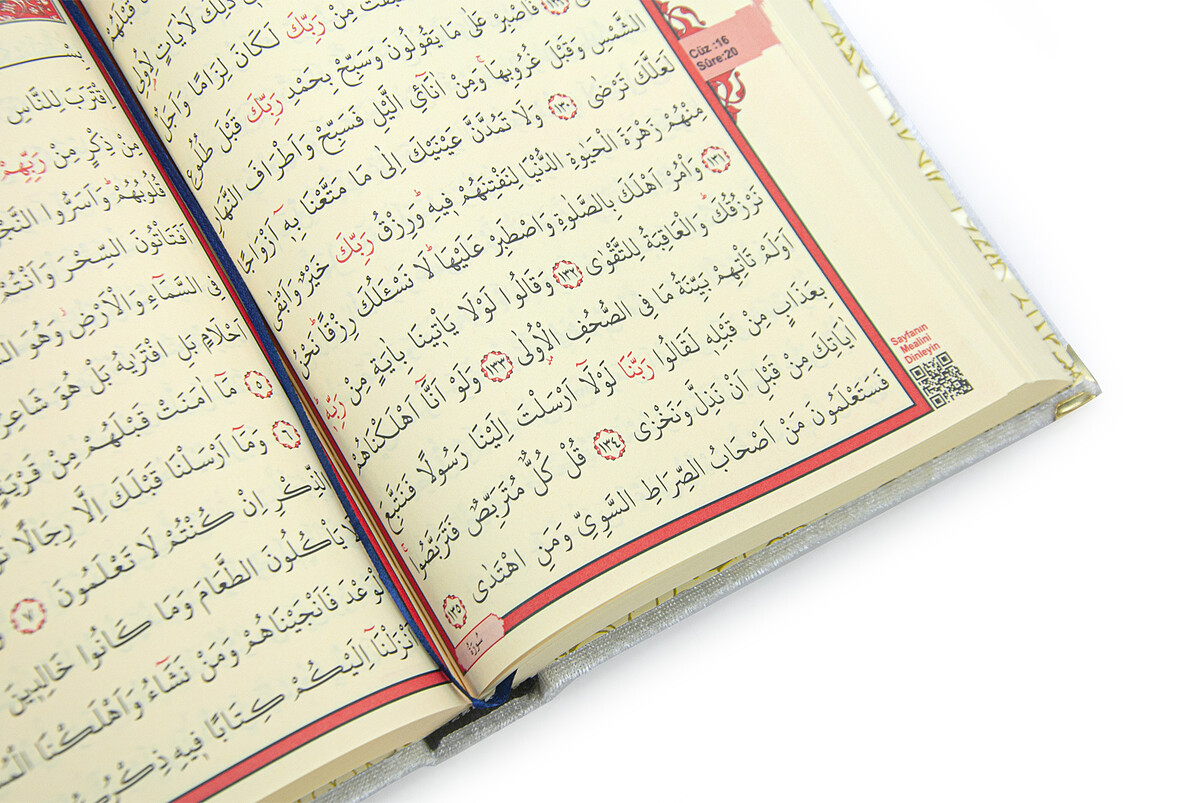 Cüz :16
Sûre:20
ذٰلِكَ لَاٰيَاتٍ لِاُولِي
مِنْ رَبِّكَ لَكَانَ لِزَامًا وَاَجَلٌ
فَاصْبِرْ عَلٰى مَا يَقُولُونَ وَسَبِّحْ بِحَمْدِ رَبِّكَ قَبْلَ طُلُوعِ
الشَّمْسِ وَقَبْلَ غُرُوبِهَاۚ وَمِنْ اٰنَٓائِ الَّيْلِ فَسَبِّحْ وَاَطْرَافَ النَّهَارِ
لَعَلَّكَ تَرْضٰى ﴿١٣٠﴾ وَلَا تَمُدَّنَّ عَيْنَيْكَ اِلٰى مَا مَتَّعْنَا بِه۪ٓ اَزْوَاجًا
مِنْهُمْ زَهْرَةَ الْحَيٰوةِ الدُّنْيَا لِنَفْتِنَهُمْ ف۪يهِۜ وَرِزْقُ رَبِّكَ خَيْرٌ وَاَبْقٰى
﴿١٣١﴾ وَأْمُرْ اَهْلَكَ بِالصَّلٰوةِ وَاصْطَبِرْ عَلَيْهَاۜ لَا نَسْـَٔلُكَ رِزْقًاۜ نَحْنُ
نَرْزُقُكَۜ وَالْعَاقِبَةُ لِلتَّقْوٰى ﴿١٣٢﴾ وَقَالُوا لَوْلَا يَأْت۪ينَا بِاٰيَةٍ مِنْ رَبِّه۪ۜ
اَوَلَمْ تَأْتِهِمْ بَيِّنَةُ مَا فِي الصُّحُفِ الْاُو۫لٰى ﴿١٣٣﴾ وَلَوْ اَنَّٓا اَهْلَكْنَاهُمْ
بِعَذَابٍ مِنْ قَبْلِه۪ لَقَالُوا رَبَّنَا لَوْلَٓا اَرْسَلْتَ اِلَيْنَا رَسُولًا فَنَتَّبِعَ
اٰيَاتِكَ مِنْ قَبْلِ اَنْ نَذِلَّ وَنَخْزٰى ﴿١٣٤﴾ قُلْ كُلٌّ مُتَرَبِّصٌ فَتَرَبَّصُواۚ
فَسَتَعْلَمُونَ مَنْ اَصْحَابُ الصِّرَاطِ السَّوِيِّ وَمَنِ اهْتَدٰى ﴿١٣٥﴾
Sayfanın
Mealini
Dinleyin
سُورَةُ
اِقْتَرَبَ لِلنَّاسِ
مِنْ ذِكْرٍ مِنْ رَبِّهِمْ
قُلُوبُهُمْۜ وَاَسَرُّوا
اَفَتَأْتُونَ السِّحْرَ وَاَنْتُمْ
فِي السَّمَٓاءِ وَالْاَرْضِۘ وَهُوَ
اَحْلَامٍ بَلِ افْتَرٰيهُ بَلْ هُوَ شَاعِرٌ
﴿٥﴾ مَٓا اٰمَنَتْ قَبْلَهُمْ مِنْ قَرْيَةٍ
﴿٦﴾ وَمَٓا اَرْسَلْنَا قَبْلَكَ اِلَّا رِجَالًا
الذِّكْرِ اِنْ كُنْتُمْ لَا تَعْلَمُونَ ﴿٧﴾
لَا يَأْكُلُونَ الطَّعَامَ وَمَا كَانُوا خَالِد۪ينَ
الْوَعْدَ فَاَنْجَيْنَاهُمْ وَمَنْ نَشَٓاءُ وَاَهْلَكْنَا
اَنْزَلْنَٓا اِلَيْكُمْ كِتَابًا ف۪يهِ ذِكْرُكُمْ